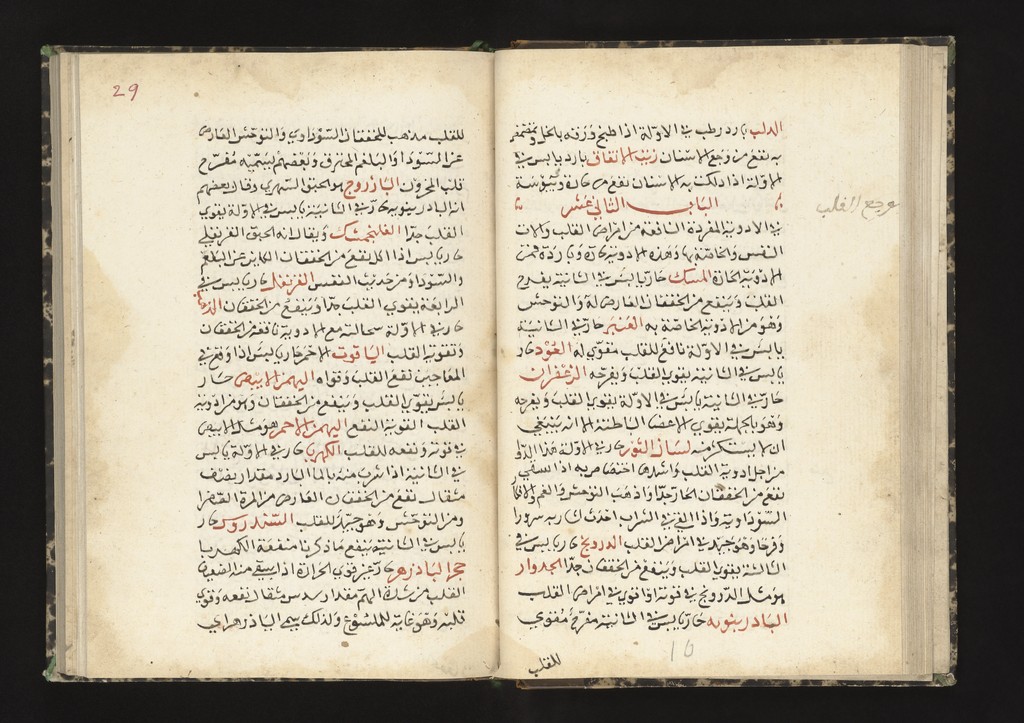 الدلب بارد رطب في الاولة اذا طبخ ورقه بالخل وتمضمض
به نفع من وجع الاسنان زيت الانفاق بارد يابس في
الاولة اذا دلكت به الاسنان نفع من حارة ويبوسة
الباب الثاني عشر
وجع القلب
في الادوية المفردة النافعة من امراض القلب والات
النفس والخاصة بها وهذه الادوية حارة وباردة فمن
الادوية الحارة المسك حار يابس في الثانية يفرح
القلب وينفع من الخفقان العارض له والتوحش
وهو من الادوية الخاصة به العنبر حار في الثانية
يابس في الاولة نافع للقلب مقوي له العود حار
يابس في الثانية يقوي القلب ويفرحه الزعفران
حار في الثانية يابس في الاولة يقوي القلب ويفرحه
وهو بالجملة يقوي الاعضا الباطنة الا انه ينبغي
ان لا يستكثر منه لسان الثور حار في الاولة هذا الدوا
من اجل ادوية القلب واشدها اختصاص به اذا سقي
نفع من الخفقان الحار جدا واذهب التوحش والغم والافكار
السوداوية واذا القي في الشراب احدث لشاربه سرورا
وفرحا وهو جيد في امراض القلب الدرونج حار يابس في
الثالثة يقوي القلب وينفع من الخفقان جدا الجدوار
هو مثل الدرونج في قوته واقوي في امراض القلب
البادرنبويه حار يابس في الثانية مفرح مقوي
للقلب
16
29
للقلب مذهب للخفقان السوداوي والتوحش العارض
عن السودا والبلغم المحترق وبعضهم يسميه مفرح
قلب المحزون الباذروج هو الحبق النهري وقال بعضهم
انه البادرنبويه حار في الثانية يابس في الاولة يقوي
القلب جدا الفلنجمشك ويقال انه الحبق القرنفلي
حار يابس اذا اكل نفع من الخفقان الكاين عن البلغم
والسودا ومن حديث النفس القرنفل حار يابس في
الرابعة يقوي القلب جدا وينفع من الخفقان الذهب
حار في الاولة سحالته مع الادوية نافع من الخفقان
وتقوية القلب الياقوت الاحمر حار يابس اذا وقع في
المعاجين نفع القلب وقواه البهمن الابيض حار
يابس يقوي القلب وينفع من الخفقان وهو من ادوية
القلب القوية النفع البهمن الاحمر هو مثل الابيض
في قوته ونفعه للقلب الكهربا حار في الاولة يابس
في الثانية اذا شرب منه بالما البارد مقدار نصف
مثقال نفع من الخفقان العارض من المرة الصفرا
ومن التوحش وهو جيد للقلب السندروس حار
يابس في الثانية ينفع ما ذكرنا منفعة الكهربا
حجر الباذزهر حار غير قوي الحرارة اذا سقي منه الضعيف
القلب من شدة الهم مقدار سدس مثقال نفعه وقوي
قلبه وهو غاية للملسوع ولذلك يسمي الباذزهر اي